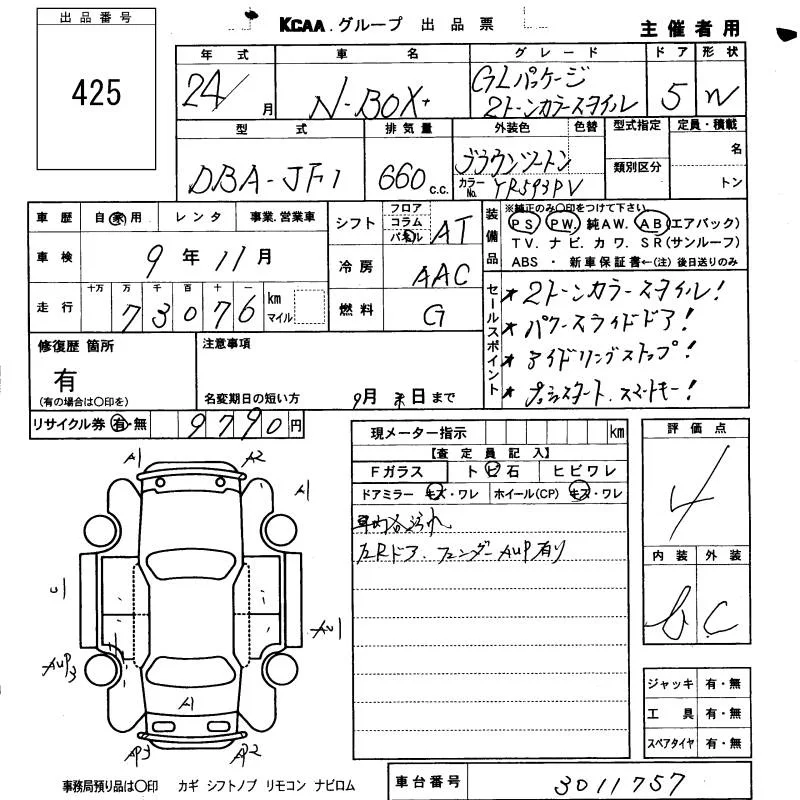 出品番号
425
KCAA.グループ 出品票
主催者用
年式 車名 グレード ドア 形状
24/ 月 N-BOX+ GLパッケージ 5 W
2トーンカラースタイル
型式 排気量 外装色 色替 型式指定 定員・積載
名
DBA-JF1 660 c.c. ブラウンツートン 類別区分
カラーNo. YR593PV トン
車歴 自家用 レンタ 事業.営業車
車検 9年11月
走行 十万 万 千 百 十 一
73076 km マイル
シフト フロア コラム パネル AT
冷房 AAC
燃料 G
装備品
※純正のみ〇印をつけて下さい。
PS. PW. 純AW. AB(エアバック)
TV. ナビ. カワ. SR(サンルーフ)
ABS ・ 新車保証書←(注)後日送りのみ
セールスポイント
★2トーンカラースタイル!
★パワースライドドア!
★アイドリングストップ!
★プッシュスタート.スマートキー!
修復歴 箇所
有
(有の場合は〇印を)
注意事項
名変期日の短い方 9月末日まで
リサイクル券 有・無 9790円
現メーター指示 km
【査定員記入】
Fガラス トビ石 ヒビワレ
ドアミラー キズ・ワレ ホイール(CP) キズ・ワレ
車内谷汚れ
左Rドア.フェンダーAUP有り
評価点
4
内装 外装
b C
ジャッキ 有・無
工具 有・無
スペアタイヤ 有・無
A1 A2
A1
AU1
AUP3
A1
AP3 AP2
事務局預り品は〇印 カギ シフトノブ リモコン ナビロム
車台番号 3011757